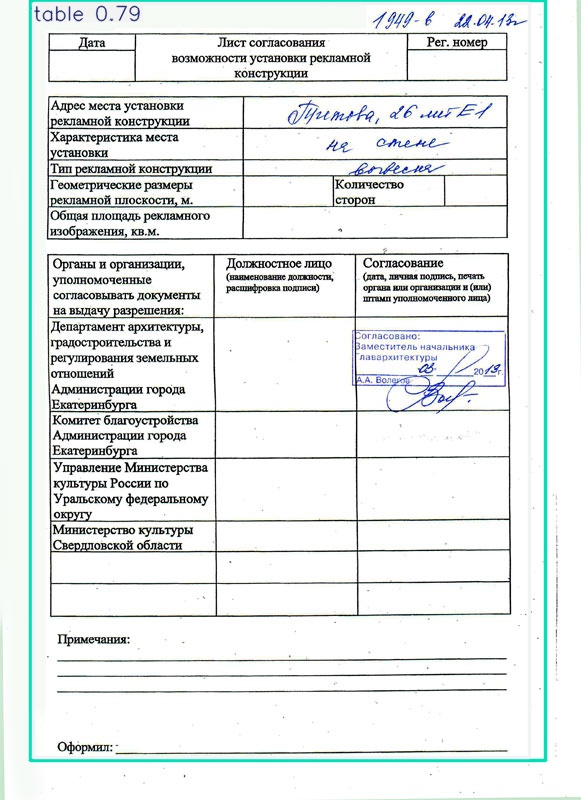 table 0.79
1949-в 22.04.13г
Дата
Лист согласования
возможности установки рекламной
конструкции
Рег. номер
Адрес места установки
рекламной конструкции
26 лит Е1
Характеристика места
установки
на стене
Тип рекламной конструкции
вывеска
Геометрические размеры
рекламной плоскости, м.
Количество
сторон
Общая площадь рекламного
изображения, кв.м.
Органы и организации,
уполномоченные
согласовывать документы
на выдачу разрешения:
Должностное лицо
(наименование должности,
расшифровка подписи)
Согласование
(дата, личная подпись, печать
органа или организации и (или)
штамп уполномоченного лица)
Департамент архитектуры,
градостроительства и
регулирования земельных
отношений
Администрации города
Екатеринбурга
Согласовано:
Заместитель начальника
Главархитектуры
03 2013г.
А.А. Волегов
Комитет благоустройства
Администрации города
Екатеринбурга
Управление Министерства
культуры России по
Уральскому федеральному
округу
Министерство культуры
Свердловской области
Примечания:
Оформил: